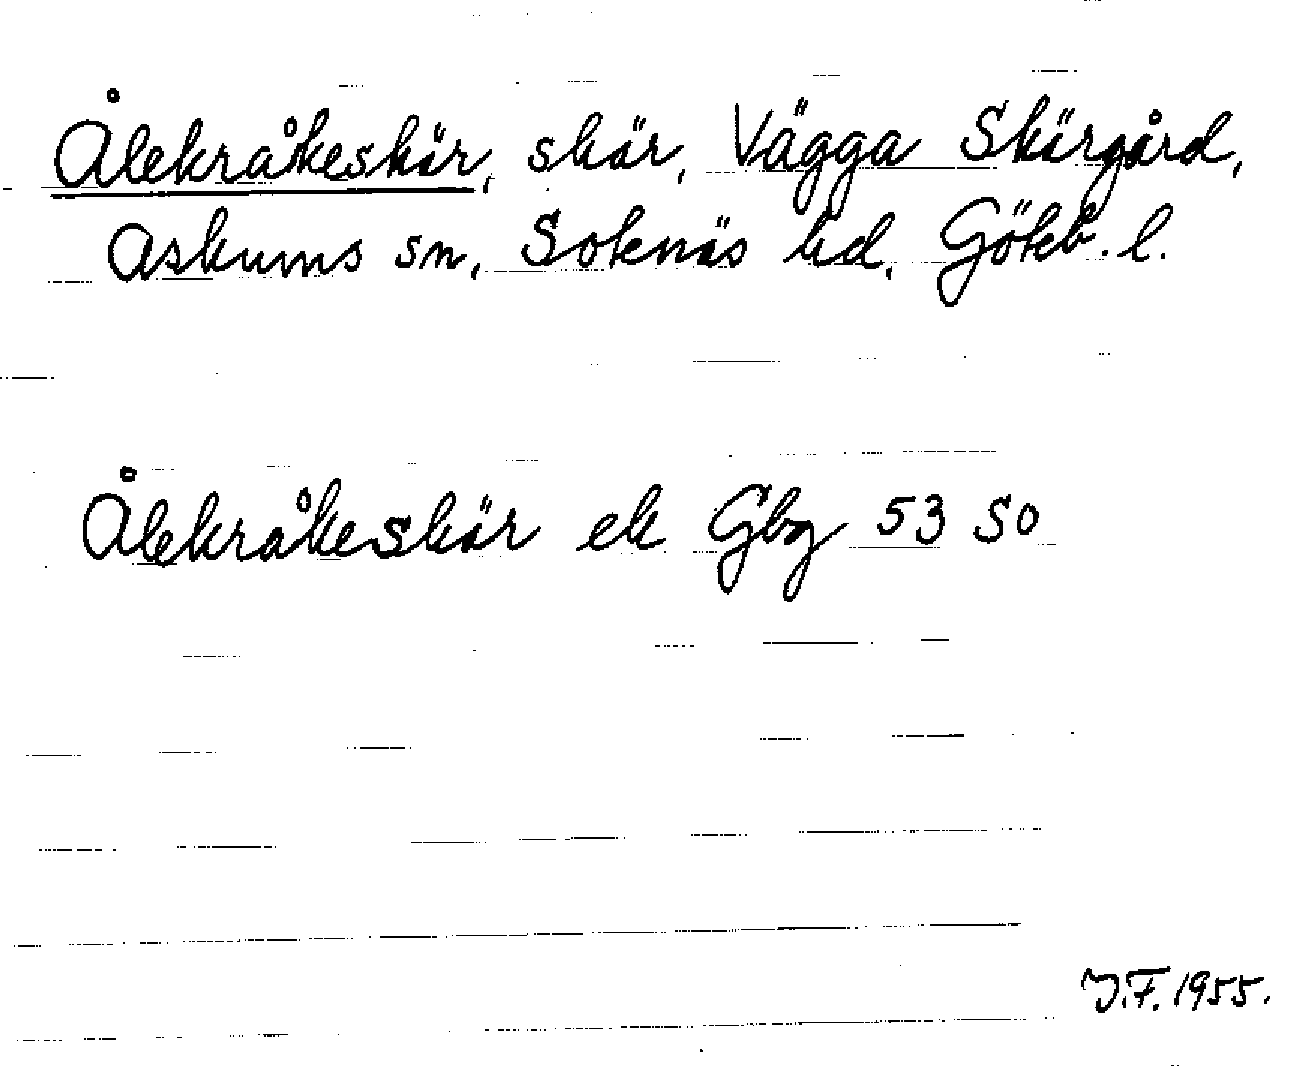 Ålekråkeskär, skär, Vägga Skärgård,
Askums sn, Sotenäs hd, Göteb. l.
Ålekråkeskär ek Gbg 53 SO
J.F. 1955.